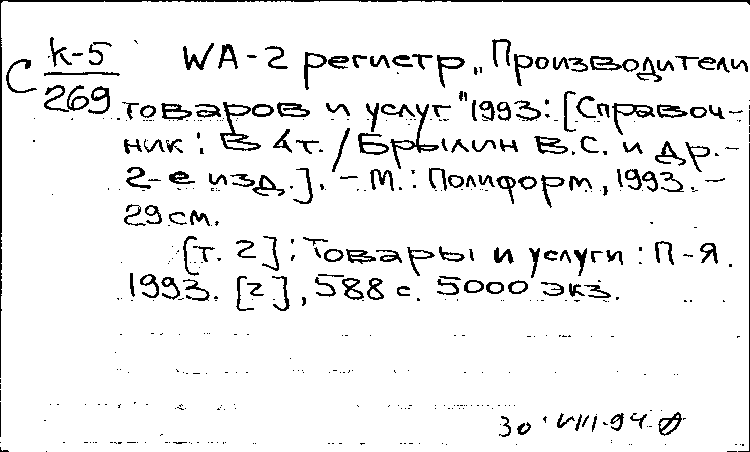 С К-5/269 WA-2 регистр „Производители
товаров и услуг" 1993: [Справоч-
ник: В 4т. / Брылин В.С. и др.-
2-е изд.]. - М.: Полиформ, 1993.-
29 см.
[Т. 2]: Товары и услуги: П-Я.
1993. [2], 588 с. 5000 экз.
30 VIII-94